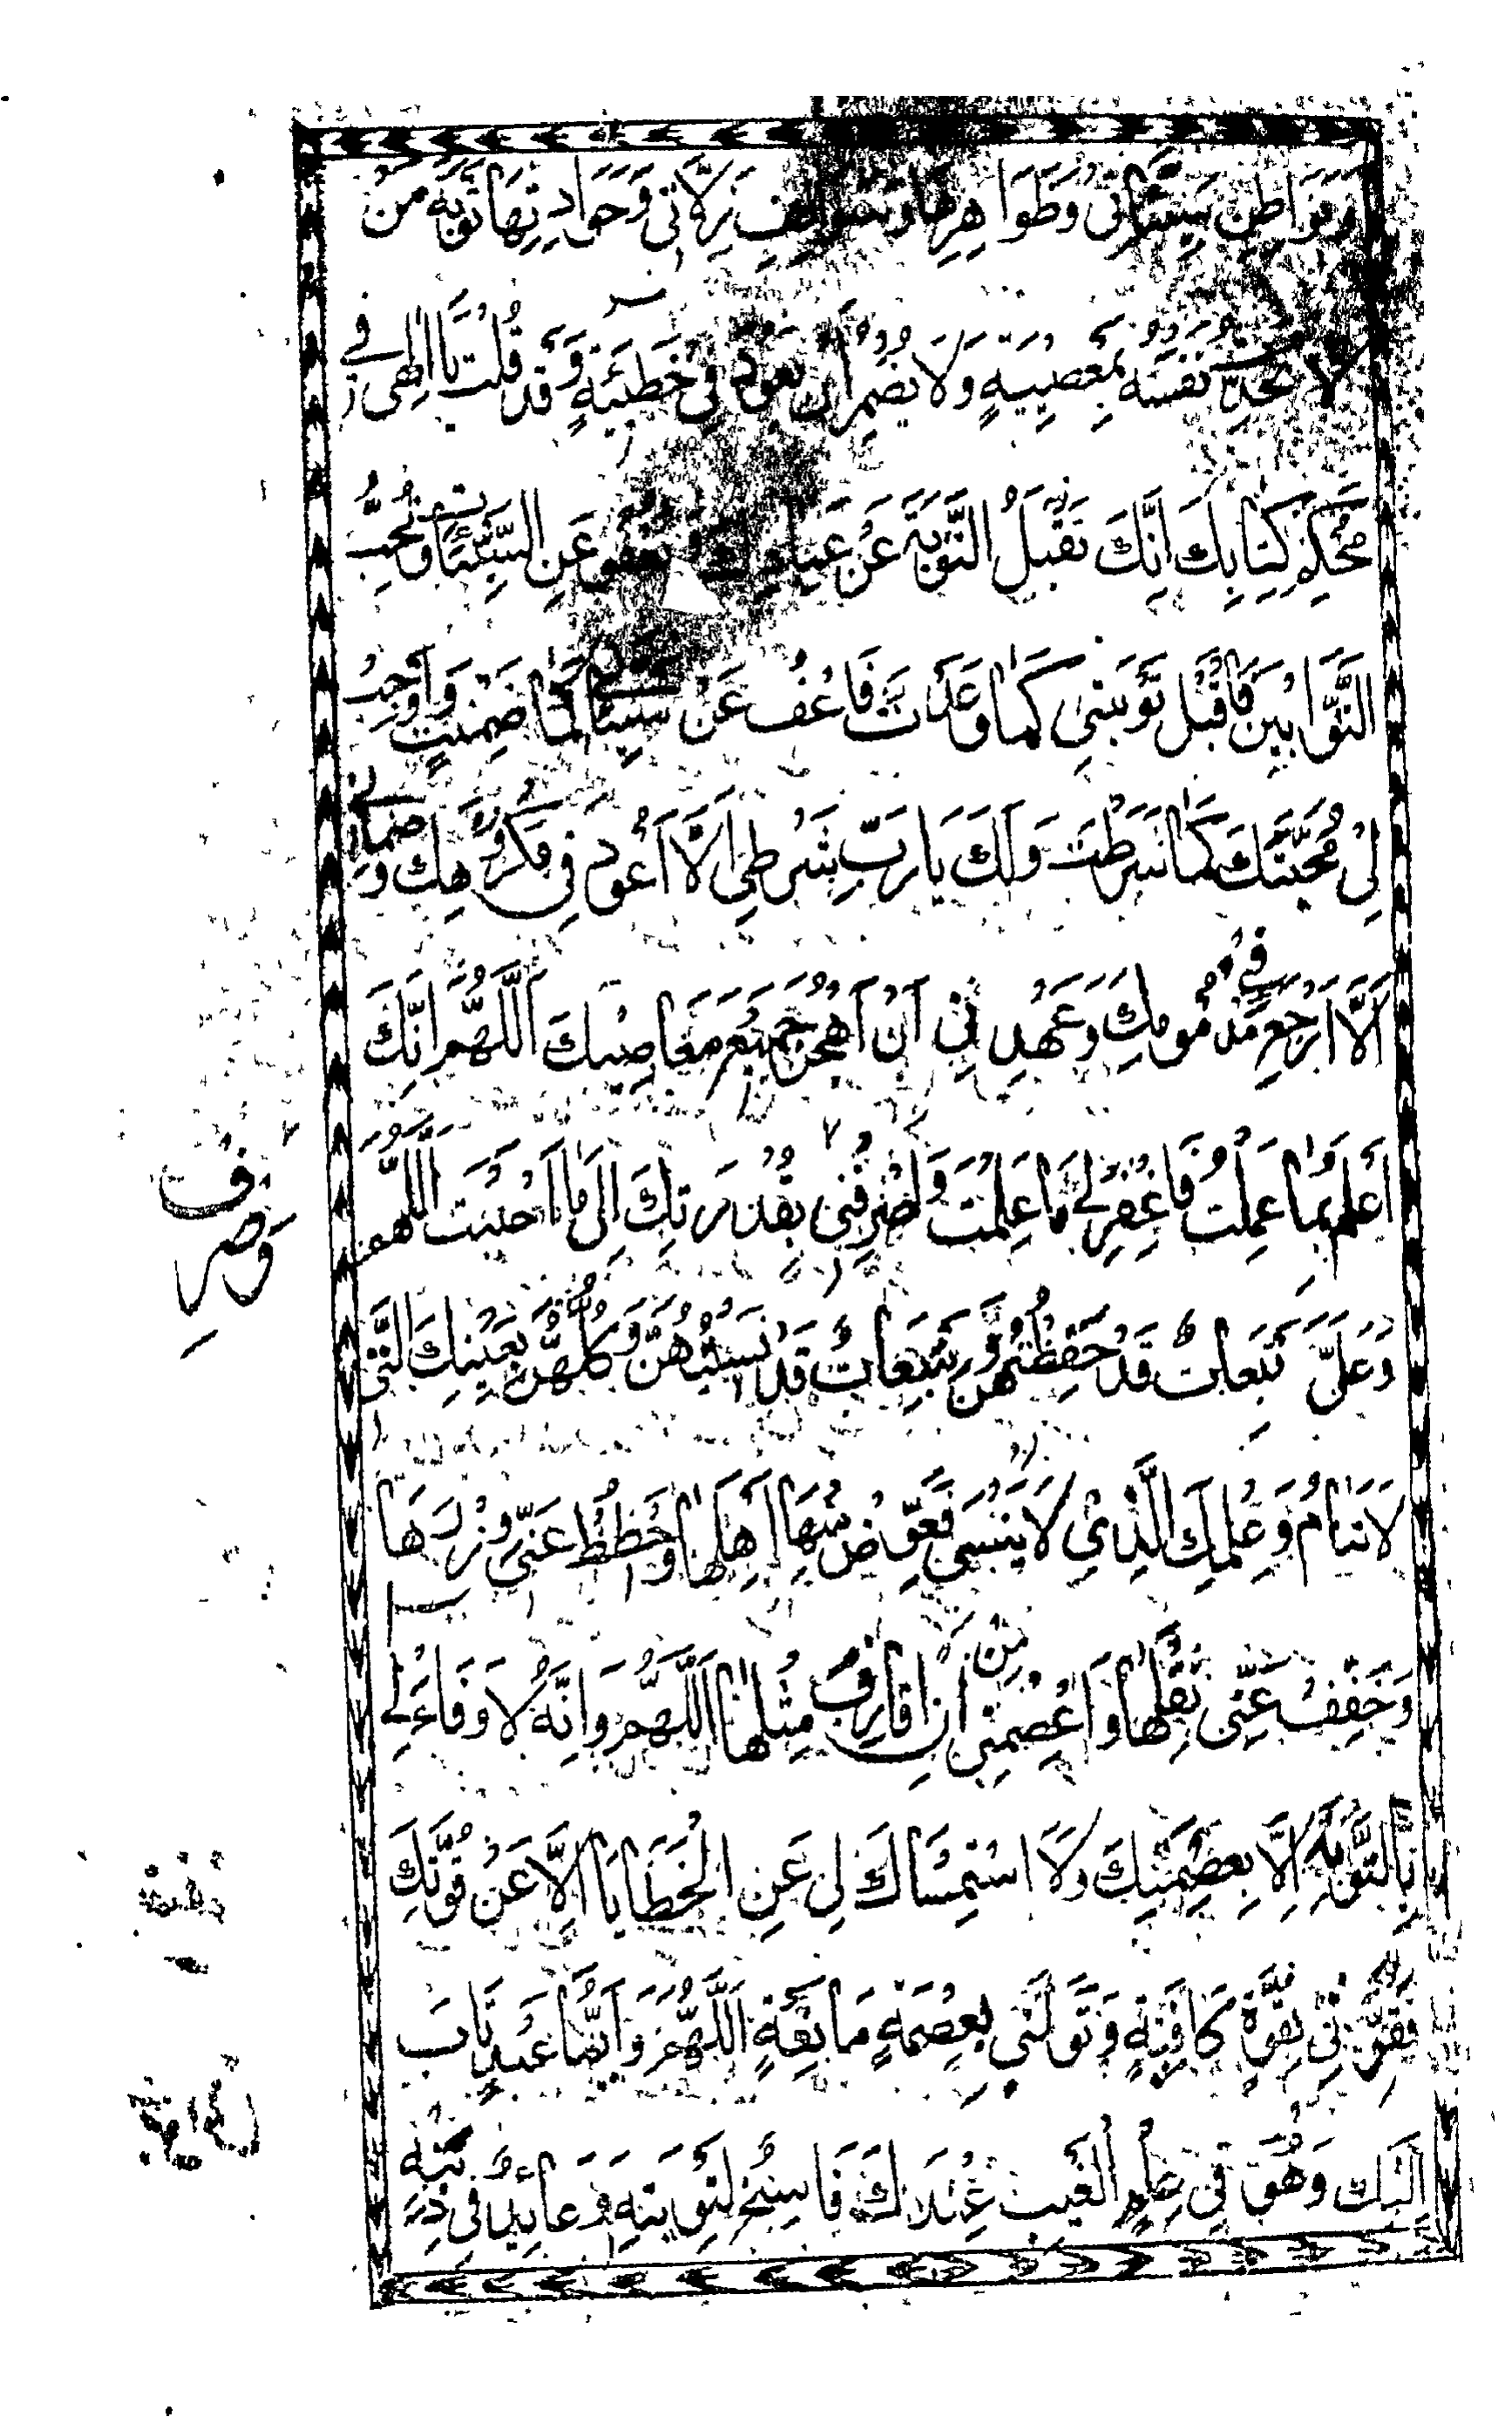 وَبَوَاطِنِ سَيِّئَاتِي وَظَوَاهِرِهَا وَسَوَالِفِ زَلَّاتِي وَحَوَادِثِهَا تَوْبَةَ مَنْ
لَا يُحَدِّثُ نَفْسَهُ بِمَعْصِيَةٍ وَلَا يُضْمِرُ أَنْ يَعُودَ فِي خَطِيئَةٍ وَقَدْ قُلْتَ يَا إِلَهِي فِي
مُحْكَمِ كِتَابِكَ إِنَّكَ تَقْبَلُ التَّوْبَةَ عَنْ عِبَادِكَ وَتَعْفُو عَنِ السَّيِّئَاتِ وَتُحِبُّ
التَّوَّابِينَ فَاقْبَلْ تَوْبَتِي كَمَا وَعَدْتَ فَاعْفُ عَنْ سَيِّئَاتِي كَمَا ضَمِنْتَ وَأَوْجِبْ
لِي مَحَبَّتَكَ كَمَا شَرَطْتَ وَلَكَ يَا رَبِّ شَرْطِي أَلَّا أَعُودَ فِي مَكْرُوهِكَ وَضَمَانِي
أَلَّا أَرْجِعَ فِي مَذْمُومِكَ وَعَهْدِي أَنْ أَهْجُرَ جَمِيعَ مَعَاصِيكَ اَللَّهُمَّ إِنَّكَ
أَعْلَمُ بِمَا عَمِلْتُ فَاغْفِرْ لِي مَا عَلِمْتَ وَاصْرِفْنِي بِقُدْرَتِكَ إِلَى مَا أَحْبَبْتَ اَللَّهُمَّ
وَعَلَيَّ تَبِعَاتٌ قَدْ حَفِظْتُهُنَّ وَتَبِعَاتٌ قَدْ نَسِيتُهُنَّ وَكُلُّهُنَّ بِعَيْنِكَ الَّتِي
لَا تَنَامُ وَعِلْمِكَ الَّذِي لَا يَنْسَى فَعَوِّضْ مِنْهَا أَهْلَهَا وَاحْطُطْ عَنِّي وِزْرَهَا
وَخَفِّفْ عَنِّي ثِقْلَهَا وَاعْصِمْنِي مِنْ أَنْ أُقَارِفَ مِثْلَهَا اَللَّهُمَّ وَإِنَّهُ لَا وَفَاءَ لِي
بِالتَّوْبَةِ إِلَّا بِعِصْمَتِكَ وَلَا اسْتِمْسَاكَ لِي عَنِ الْخَطَايَا إِلَّا عَنْ قُوَّتِكَ
فَقَوِّنِي بِقُوَّةٍ كَافِيَةٍ وَتَوَلَّنِي بِعِصْمَةٍ مَانِعَةٍ اَللَّهُمَّ وَأَيُّمَا عَبْدٍ تَابَ
إِلَيْكَ وَهُوَ فِي عِلْمِ الْغَيْبِ عِنْدَكَ فَاسِخٌ لِتَوْبَتِهِ وَعَائِدٌ فِي ذَنْبِهِ
وَصَرِف